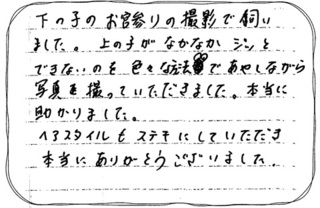 下の子のお宮参りの撮影で伺い
ました。上の子がなかなかジッと
できないのを色々な方法であやしながら
写真を撮っていただきました。本当に
助かりました。
ヘアスタイルもステキにしていただき
本当にありがとうございました。